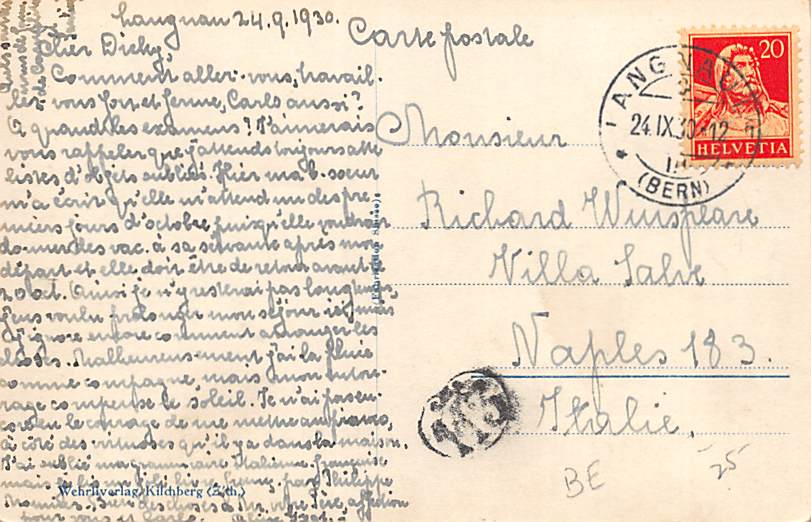 Langnau 24.9.1930.
Cher Dicky,
Comment allez-vous, travail-
lez-vous fort et ferme, Carlo aussi?
A quand les examens? J'aimerais
vous rappeler que j'attends toujours cette
liste d'objets oubliés. Hier ma b. soeur
m'a écrit qu'elle m'attend un des pre-
miers jours d'octobre, puisqu'elle voudrait
donner des vac. à sa servante après mon
départ et elle doit être de retour avant le
20 oct. Ainsi je n'y resterai pas longtemps.
J'eus voulu prolonger mon séjour ici, mais
j'ignore encore comment arranger les
choses. Malheureusement j'ai la pluie
comme compagne, mais mon entou-
rage compense le soleil. Je n'ai pas en-
core eu le courage de me mettre au piano,
à côté des virtuoses qu'il y a dans la maison.
J'ai oublié ma grammaire italienne française
mais par Philippe
Meunier. votre Père, affection
pour vous et Carlo.
Carte postale
Monsieur
Richard Winspeare
Villa Salve
Naples 183.
Italie.
20
HELVETIA
LANGNAU
24.IX.30.-12
(BERN)
Wehrliverlag, Kilchberg (Zch.)
BE
25